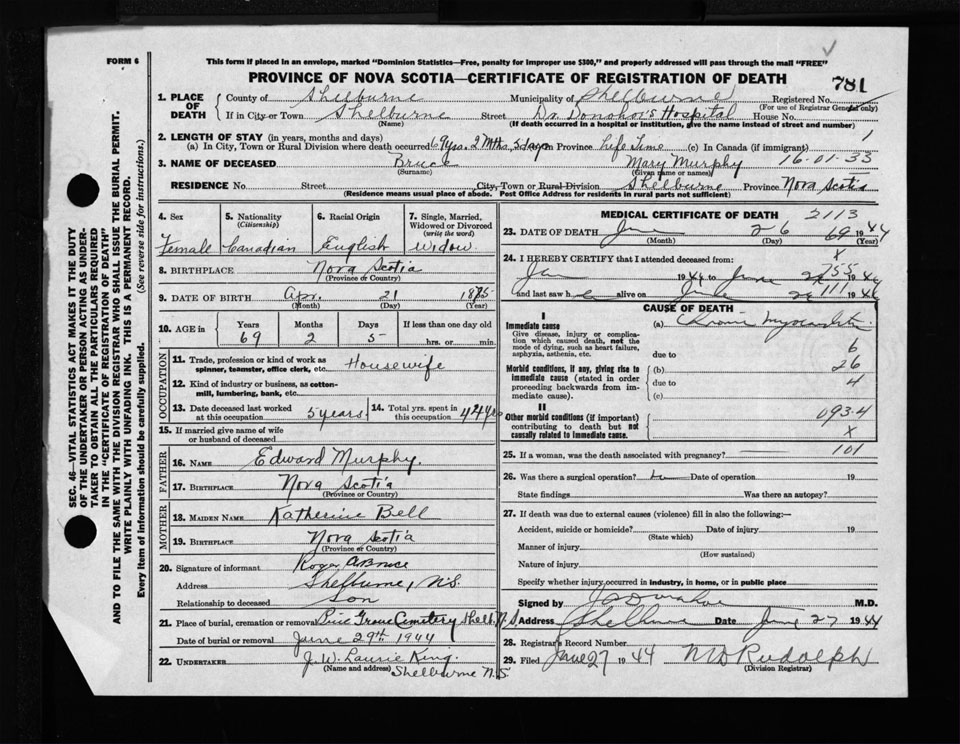 FORM 6
This form if placed in an envelope, marked "Dominion Statistics—Free, penalty for improper use $300," and properly addressed will pass through the mail "FREE"
PROVINCE OF NOVA SCOTIA—CERTIFICATE OF REGISTRATION OF DEATH
781
1. PLACE OF DEATH
County of Shelburne Municipality of Shelburne Registered No.
(For use of Registrar General only)
If in City or Town Shelburne Street Dr. Donohoe's Hospital House No.
(Name) (If death occurred in a hospital or institution, give the name instead of street and number)
2. LENGTH OF STAY (in years, months and days) 1
(a) In City, Town or Rural Division where death occurred 69 yrs. 2 Mths. 5 days (b) In Province Life Time (c) In Canada (if immigrant)
3. NAME OF DECEASED Bruce Mary Murphy 16-01-33
(Surname) (Given name or names)
RESIDENCE No. Street City, Town or Rural Division Shelburne Province Nova Scotia
(Residence means usual place of abode. Post Office Address for residents in rural parts not sufficient)
4. Sex Female
5. Nationality (Citizenship) Canadian
6. Racial Origin English
7. Single, Married, Widowed or Divorced (write the word) Widow
8. BIRTHPLACE Nova Scotia
(Province or Country)
9. DATE OF BIRTH Apr. 21 1875
(Month) (Day) (Year)
10. AGE in Years Months Days If less than one day old
69 2 5 hrs. or min.
OCCUPATION
11. Trade, profession or kind of work as spinner, teamster, office clerk, etc. Housewife
12. Kind of industry or business, as cotton-mill, lumbering, bank, etc.
13. Date deceased last worked at this occupation 5 years
14. Total yrs. spent in this occupation 42 yrs
15. If married give name of wife or husband of deceased
FATHER
16. NAME Edward Murphy.
17. BIRTHPLACE Nova Scotia
(Province or Country)
MOTHER
18. MAIDEN NAME Katherine Bell
19. BIRTHPLACE Nova Scotia
(Province or Country)
20. Signature of informant A Bruce
Address Shelburne, N.S.
Relationship to deceased Son
21. Place of burial, cremation or removal Pine Grove Cemetery Shel. N.S.
Date of burial or removal June 29th 1944
22. UNDERTAKER J. W. Laurie King.
(Name and address) Shelburne N.S.
MEDICAL CERTIFICATE OF DEATH 2113
23. DATE OF DEATH June 26 69 1944
(Month) (Day) (Year)
24. I HEREBY CERTIFY that I attended deceased from: x
Jan 1944 to June 155 1944
and last saw h alive on June 111 1944
CAUSE OF DEATH
I
Immediate cause
Give disease, injury or complication which caused death, not the mode of dying, such as heart failure, asphyxia, asthenia, etc.
(a)
due to 6
Morbid conditions, if any, giving rise to immediate cause (stated in order proceeding backwards from immediate cause).
(b) 26
due to 4
(c)
II
Other morbid conditions (if important) contributing to death but not causally related to immediate cause.
093.4
x
25. If a woman, was the death associated with pregnancy? 101
26. Was there a surgical operation? Date of operation 19
State findings Was there an autopsy?
27. If death was due to external causes (violence) fill in also the following:—
Accident, suicide or homicide? Date of injury 19
(State which)
Manner of injury
(How sustained)
Nature of injury
Specify whether injury occurred in industry, in home, or in public place
Signed by M.D.
Address Shelburne Date June 27 1944
28. Registrar's Record Number
29. Filed June 27 1944 M D Rudolph
(Division Registrar)
SEC. 46—VITAL STATISTICS ACT MAKES IT THE DUTY
OF THE UNDERTAKER OR PERSON ACTING AS UNDER-
TAKER TO OBTAIN ALL THE PARTICULARS REQUIRED
IN THE "CERTIFICATE OF REGISTRATION OF DEATH"
AND TO FILE THE SAME WITH THE DIVISION REGISTRAR WHO SHALL ISSUE THE BURIAL PERMIT.
WRITE PLAINLY WITH UNFADING INK. THIS IS A PERMANENT RECORD.
Every item of information should be carefully supplied. (See reverse side for instructions.)